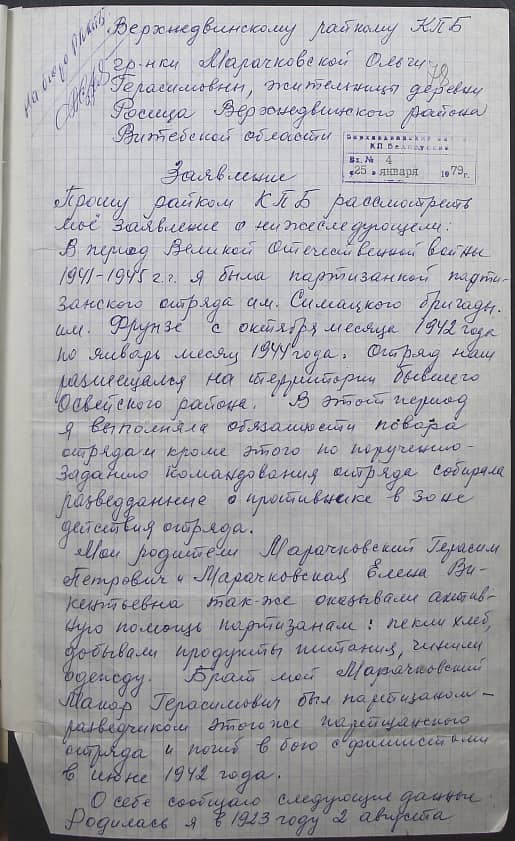 на бюро РККПБ
Верхнедвинскому райкому КПБ
гр-нки Марачковской Ольги
Герасимовны, жительницы деревни
Росица Верхнедвинского района
Витебской области
КП Белоруссии
Вх. № 4
"25" января 1979г.
Заявление
Прошу райком КПБ рассмотреть
моё заявление о нижеследующем:
В период Великой Отечественной войны
1941-1945 г.г. я была партизанкой парти-
занского отряда им. Симацкого бригады.
им. Фрунзе с октября месяца 1942 года
по январь месяц 1944 года. Отряд наш
размещался на территории бывшего
Освейского района. В этот период
я выполняла обязанности повара
отряда и кроме этого по поручению-
заданию командования отряда собирала
разведданные о противнике в зоне
действия отряда.
Мои родители Марачковский Герасим
Петрович и Марачковская Елена Ви-
кентьевна так-же оказывали актив-
ную помощь партизанам: пекли хлеб,
добывали продукты питания, чинили
одежду. Брат мой Марачковский
Макар Герасимович был партизаном-
разведчиком этого же партизанского
отряда и погиб в бою с фашистами
в июне 1942 года.
О себе сообщаю следующие данные
Родилась я в 1923 году 2 августа